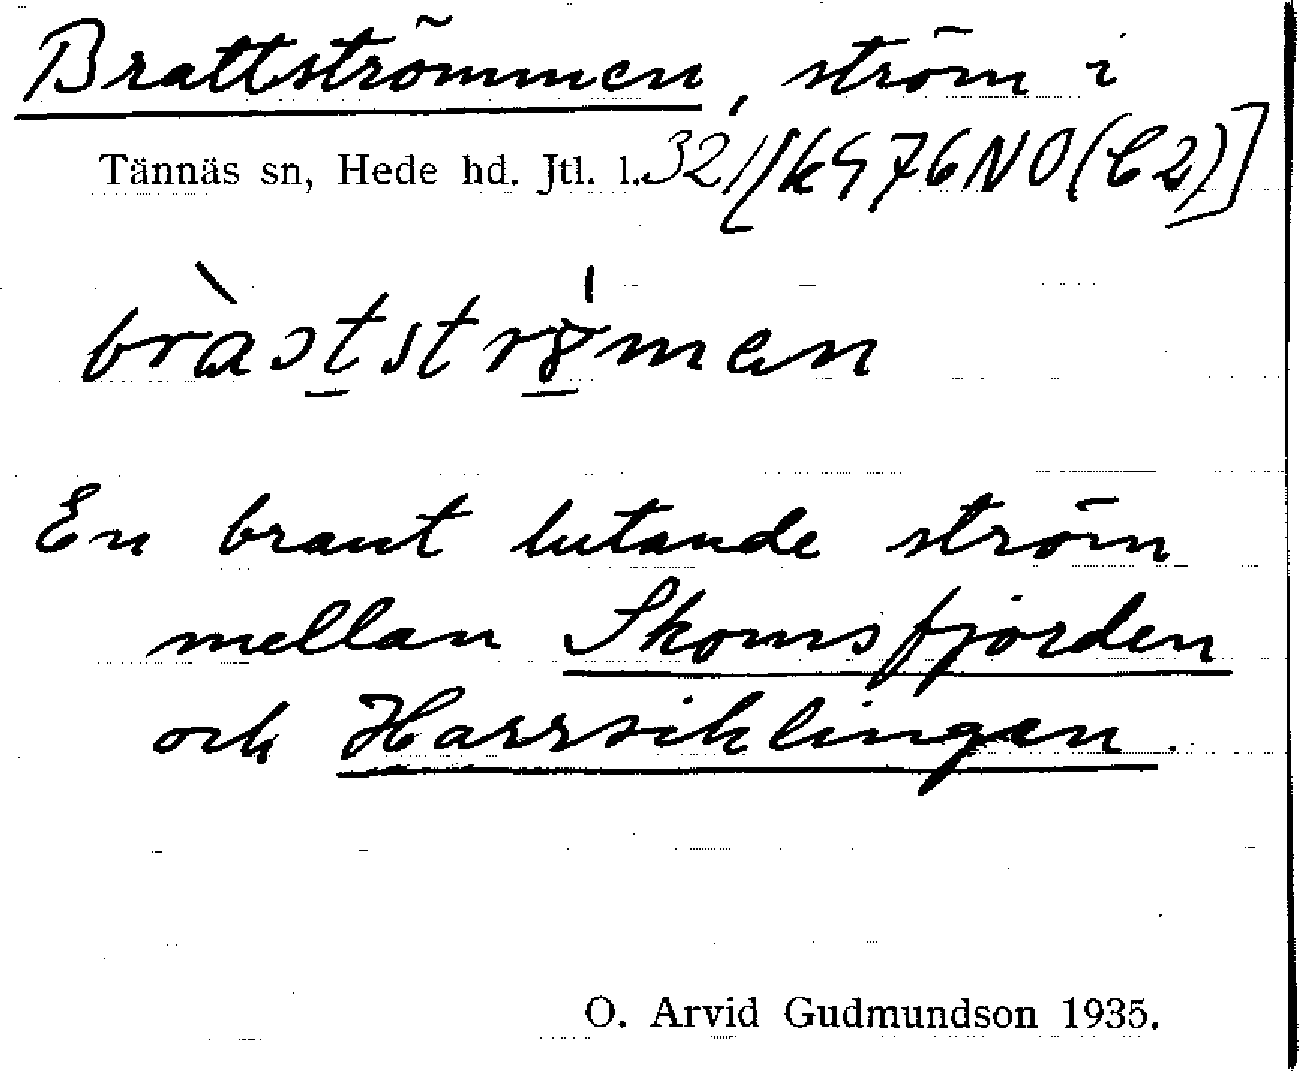 Brattströmmen, ström i
Tännäs sn, Hede hd. Jtl. l. 32/[k976NO(C2)]
En brant lutande ström
mellan Skomsfjorden
och Harrsiklingen.
O. Arvid Gudmundson 1935.